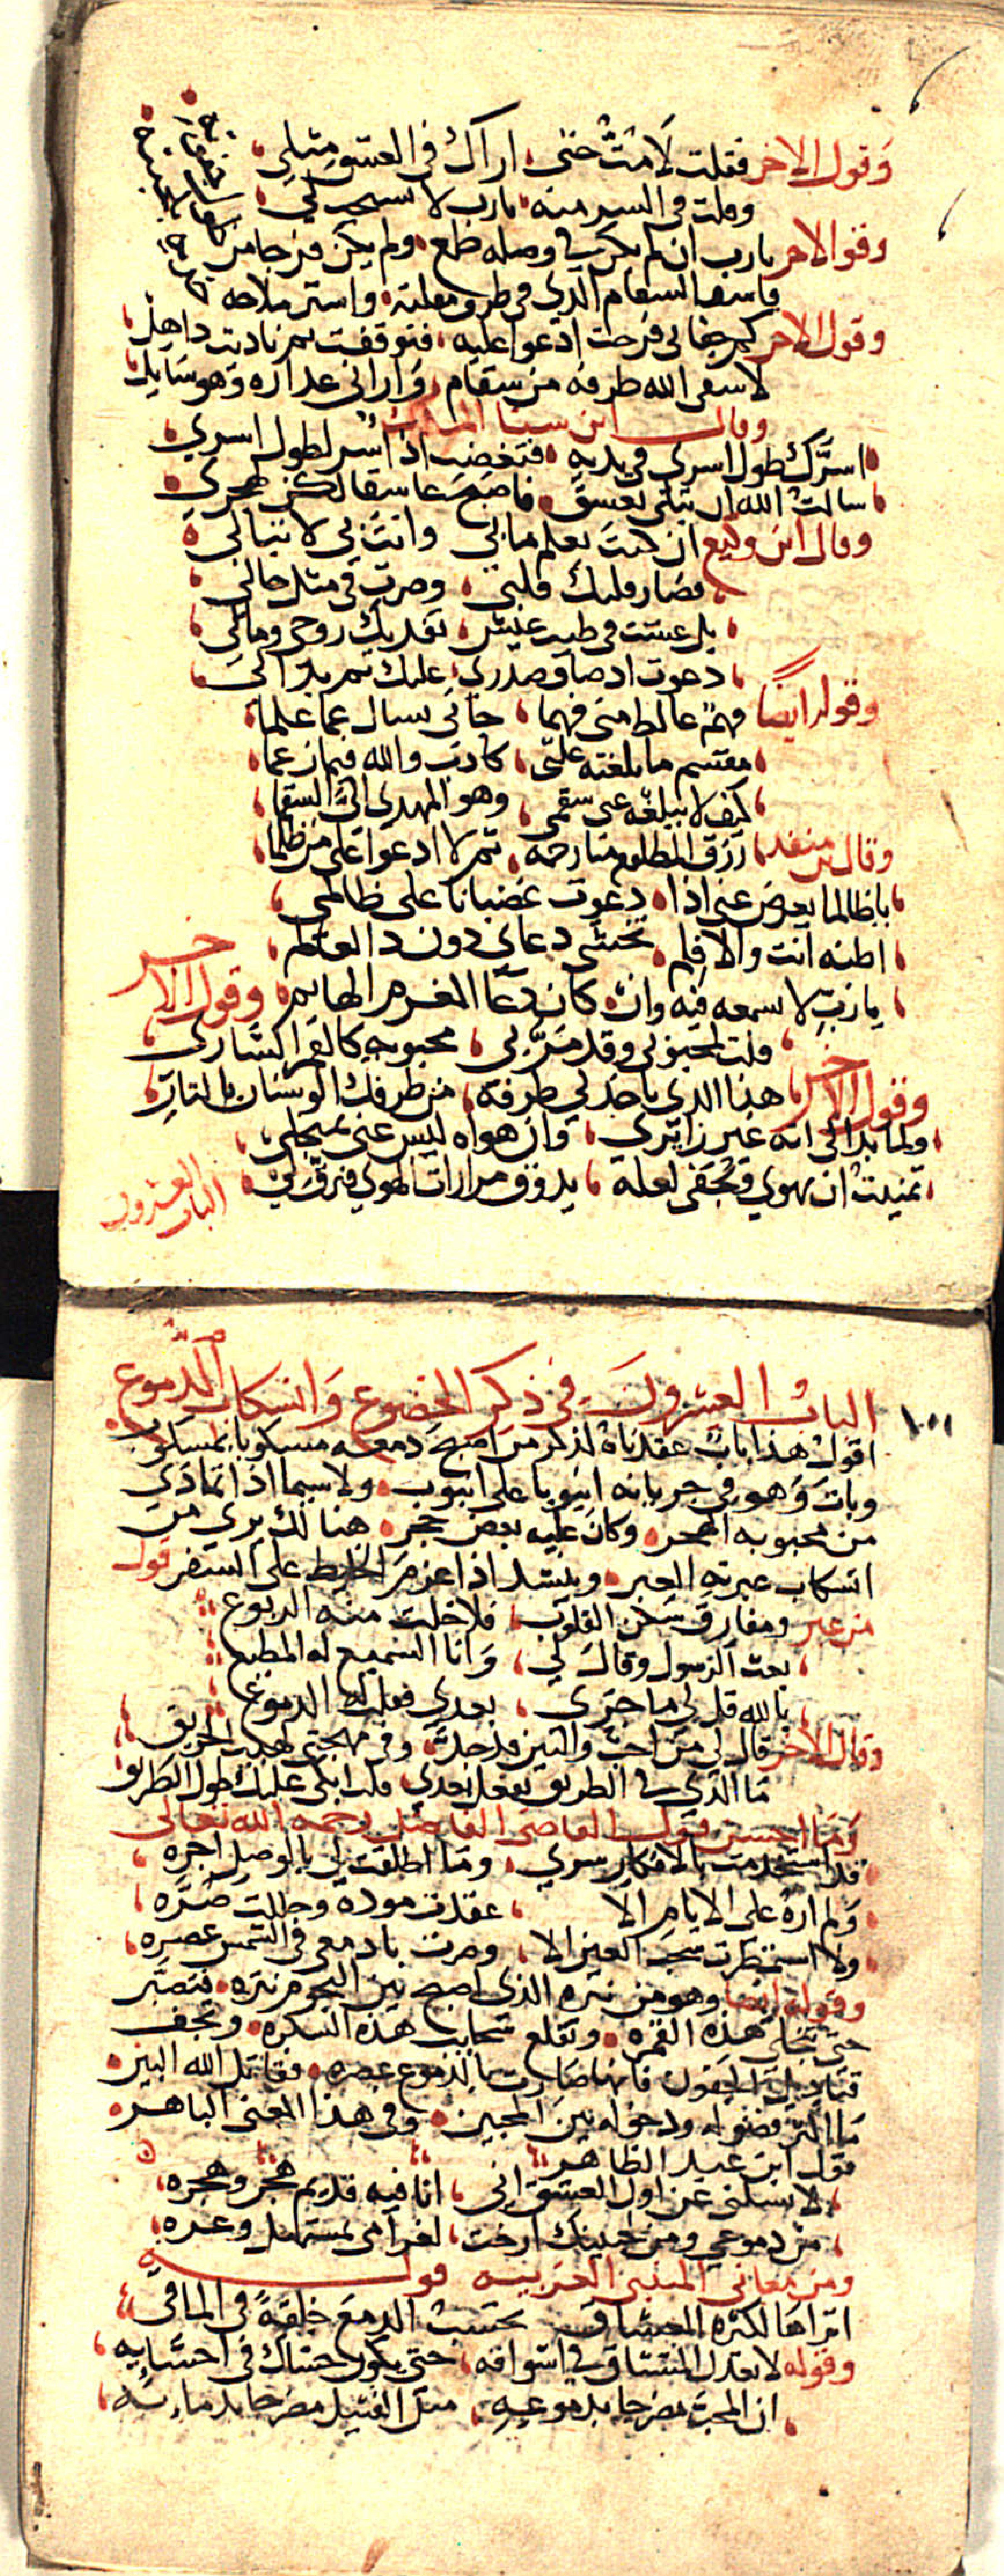 وقول الاخر فقلت لا مت حتى اراك في العشق مثلي
وقلت في السر منه يارب لا تستجيب لي
وقول الاخر يارب ان لم يكن في وصله طمع ولم يكن فرجا من
فاشف السقام الذي في طرف مقلته واستر ملاحة
وقول الاخر كم جفاني فرحت ادعوا عليه فتوقفت ثم ناديت ذاهل
لا شفى الله طرفه من سقام واراني عذاره وهو سايل
وقال ابن سنا الملك
اسرك طول اسري في يديه فتغضب اذا اسر لطول اسري
سالت الله ان يبلى بعشق فاصبح عاشقا لكن هجري
وقال ابن وكيع ان كنت تعلم ما بي وانت بي لا تبالي
فصار قلبك قلبي وصرت في مثل حالي
بل عشت في طيب عيش تفديك روحي ومالي
دعوت اذ ضاق صدري عليك ثم بدا لي
وقوله ايضا فهم غالط مني فهما جاني يسال عما علما
مقسم ما بلغته علتي كاذب والله فيما زعما
كيف لا يبلغه عني سقمي وهو المهدي الي السقما
وقال بن منقذ رزق المظلوم منا رحمه ثم لا ادعوا على من ظلما
يا ظالما يعرض عني اذا دعوت غضبانا على ظالمي
اظنه انت والا فلم تخشى دعائي دون ذا العالم
يا رب لا تسمعه فيه وان كان دعا المغرم الهايم وقول الاخر
قلت لمحبوبي وقد مر بي محبوبه كالقمر الساري
وقول الاخر هذا الذي ياخذ لي طرفه من طرفك الوسنان بالثار
ولما بدا لي انه غير زايري وان هواه ليس عني بمنجلي
تمنيت ان يهوى ويجفى لعله يذوق مرارات الهوى فيرق لي
الباب العشرون
الباب العشرون في ذكر الخضوع وانسكاب الدموع
اقول هذا باب عقدناه لذكر من اصبح دمعه مسكوبا بمسكوب
وبات وهو في جريانه انبوبا على انبوب ولا سيما اذا تمادى
من محبوبه الهجر وكان عليه بعض حجر هنالك يرى من
انسكاب عبرته العبر وينشد اذا عزم الخليط على السفر قول
من عبر ومفارق سكن القلوب فلا خلت منه الربوع
بعث الرسول وقال لي وانا السميع له المطيع
بالله قل لي ما جرى بعدي فقلت له الدموع
وقال الاخر قال لي من احب والبين قد جد وفي مهجتي لهيب الحريق
ما الذي في الطريق تفعل بعدي قلت ابكي عليك طول الطريق
وما احسن قول القاضي الفاضل رحمه الله تعالى
قد استخدمت بالافكار سري وما اطلقت لي بالوصل اجره
ولم اره على الايام الا عقدت موده وحللت صره
ولا استمطرت سحب العين الا وصرت بادمعي في الشمس عصره
وقوله ايضا وهو من نثره الذي اصبح بين النجوم نثره فنصبر
حتى تنجلي هذه الغمره وتقلع سحايب هذه السكره وتجف
قناديل الجفون فانها صارت بالدموع عصره فقاتل الله البين
ما اكثر فضوله ودخوله بين المحبين وفي هذا المعنى الباهر
قول ابن عبد الظاهر
لا تسلني عن اول العشق اني انا فيه قديم هجر وهجره
من دموعي ومن جبينك ارخت لغرامي بمستهل وغره
ومن معاني المتنبي الغريبه قوله
اتراها لكثره العشاق تحسب الدمع خلقة في الماقي
وقوله لا تعذل المشتاق في اشواقه حتى يكون حشاك في احشايه
ان المحب مضرجا بدموعه مثل القتيل مضرجا بدمائه